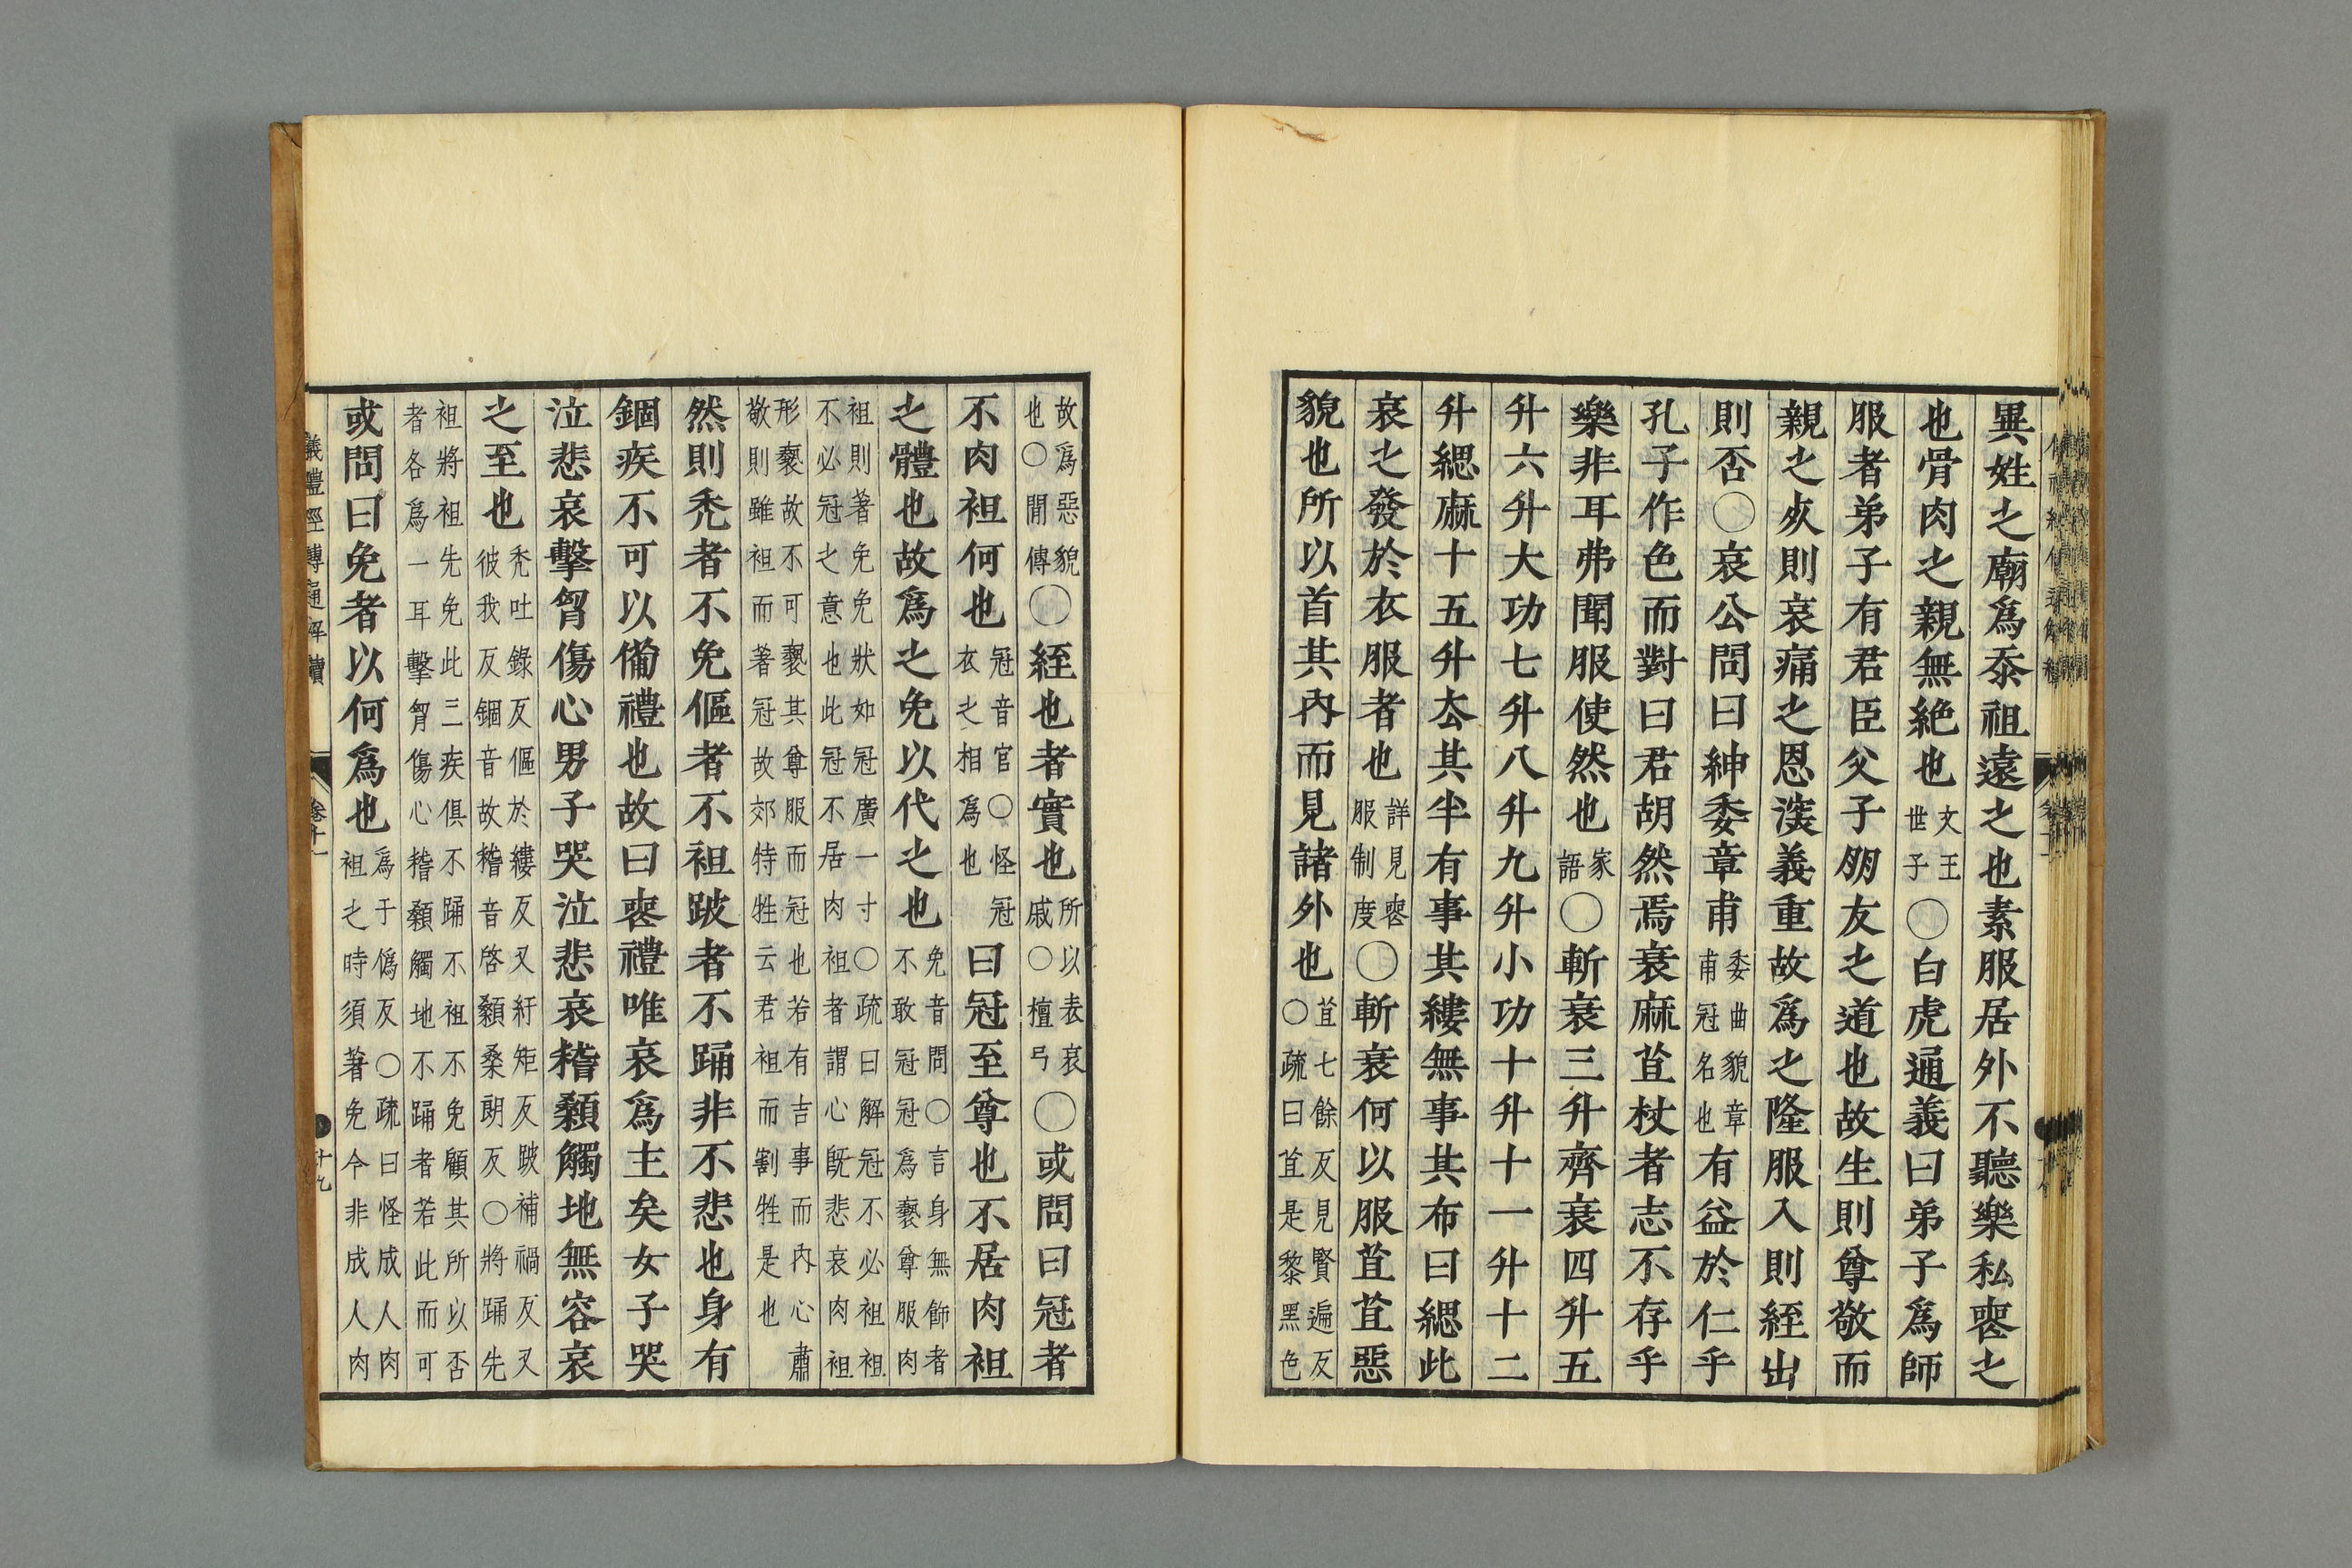 異姓之廟爲忝祖遠之也素服居外不聽樂私喪之
也骨肉之親無絶也文王世子○白虎通義曰弟子爲師
服者弟子有君臣父子朋友之道也故生則尊敬而
親之死則哀痛之恩深義重故爲之隆服入則絰出
則否○哀公問曰紳委章甫委曲貌章甫冠名也有益於仁乎
孔子作色而對曰君胡然焉衰麻苴杖者志不存乎
樂非耳弗聞服使然也家語○斬衰三升齊衰四升五
升六升大功七升八升九升小功十升十一升十二
升緦麻十五升去其半有事其縷無事其布曰緦此
哀之發於衣服者也詳見喪服制度○斬衰何以服苴苴惡
貌也所以首其內而見諸外也苴七餘反見賢遍反○疏曰苴是黎黑色
故爲惡貌也○間傳○絰也者實也所以表哀戚○檀弓○或問曰冠者
不肉袒何也冠音官○怪冠衣之相爲也曰冠至尊也不居肉袒
之體也故爲之免以代之也免音問○言身無飾者不敢冠冠爲褻尊服肉
袒則著免免狀如冠冠廣一寸○疏曰解冠不必袒袒不必冠之意也此冠不居肉袒者謂心旣悲哀肉袒
形褻故不可褻其尊服而冠也若有吉事而內心肅敬則雖袒而著冠故郊特牲云君袒而割牲是也
然則禿者不免傴者不袒跛者不踊非不悲也身有
錮疾不可以備禮也故曰喪禮唯哀爲主矣女子哭
泣悲哀擊胷傷心男子哭泣悲哀稽顙觸地無容哀
之至也禿吐錄反傴於縷反又紆矩反跛補禍反又彼我反錮音故稽音啓顙桑朗反○將踊先
袒將袒先免此三疾俱不踊不袒不免顧其所以否者各爲一耳擊胷傷心稽顙觸地不踊者若此而可
或問曰免者以何爲也爲于僞反○疏曰怪成人肉袒之時須著免今非成人肉
儀禮經傳通解續
卷十一
十九